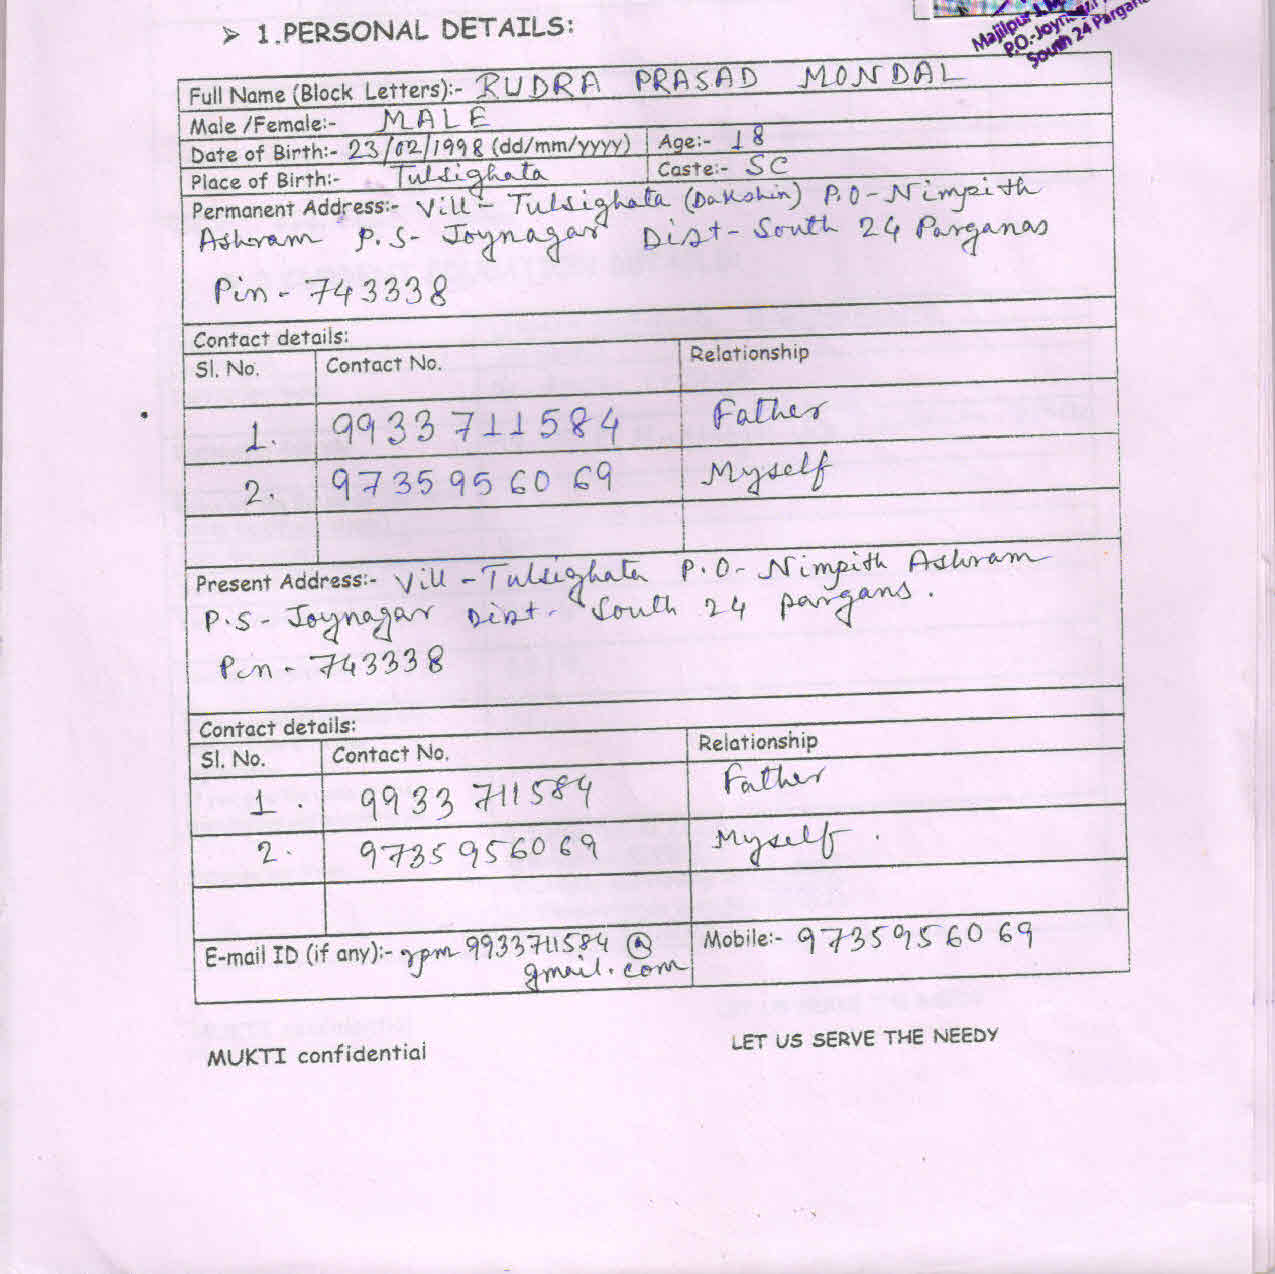 ➢ 1.PERSONAL DETAILS:
Majilpur J.M.
P.O.-Joynagar
South 24 Pargan
Full Name (Block Letters):- RUDRA PRASAD MONDAL
Male /Female:- MALE
Date of Birth:- 23/02/1998 (dd/mm/yyyy) Age:- 18
Place of Birth:- Tulsighata Caste:- SC
Permanent Address:- Vill - Tulsighata (Dakshin) P.O - Nimpith
Ashram P.S- Joynagar Dist - South 24 Parganas
Pin - 743338
Contact details:
Sl. No. Contact No. Relationship
1. 9933711584 Father
2. 9735956069 Myself
Present Address:- Vill - Tulsighata P.O- Nimpith Ashram
P.S - Joynagar Dist- South 24 pargans.
Pin - 743338
Contact details:
Sl. No. Contact No. Relationship
1. 9933 711584 Father
2. 9735956069 Myself.
E-mail ID (if any):- rpm9933711584@ Mobile:- 9735956069
gmail.com
MUKTI confidential LET US SERVE THE NEEDY